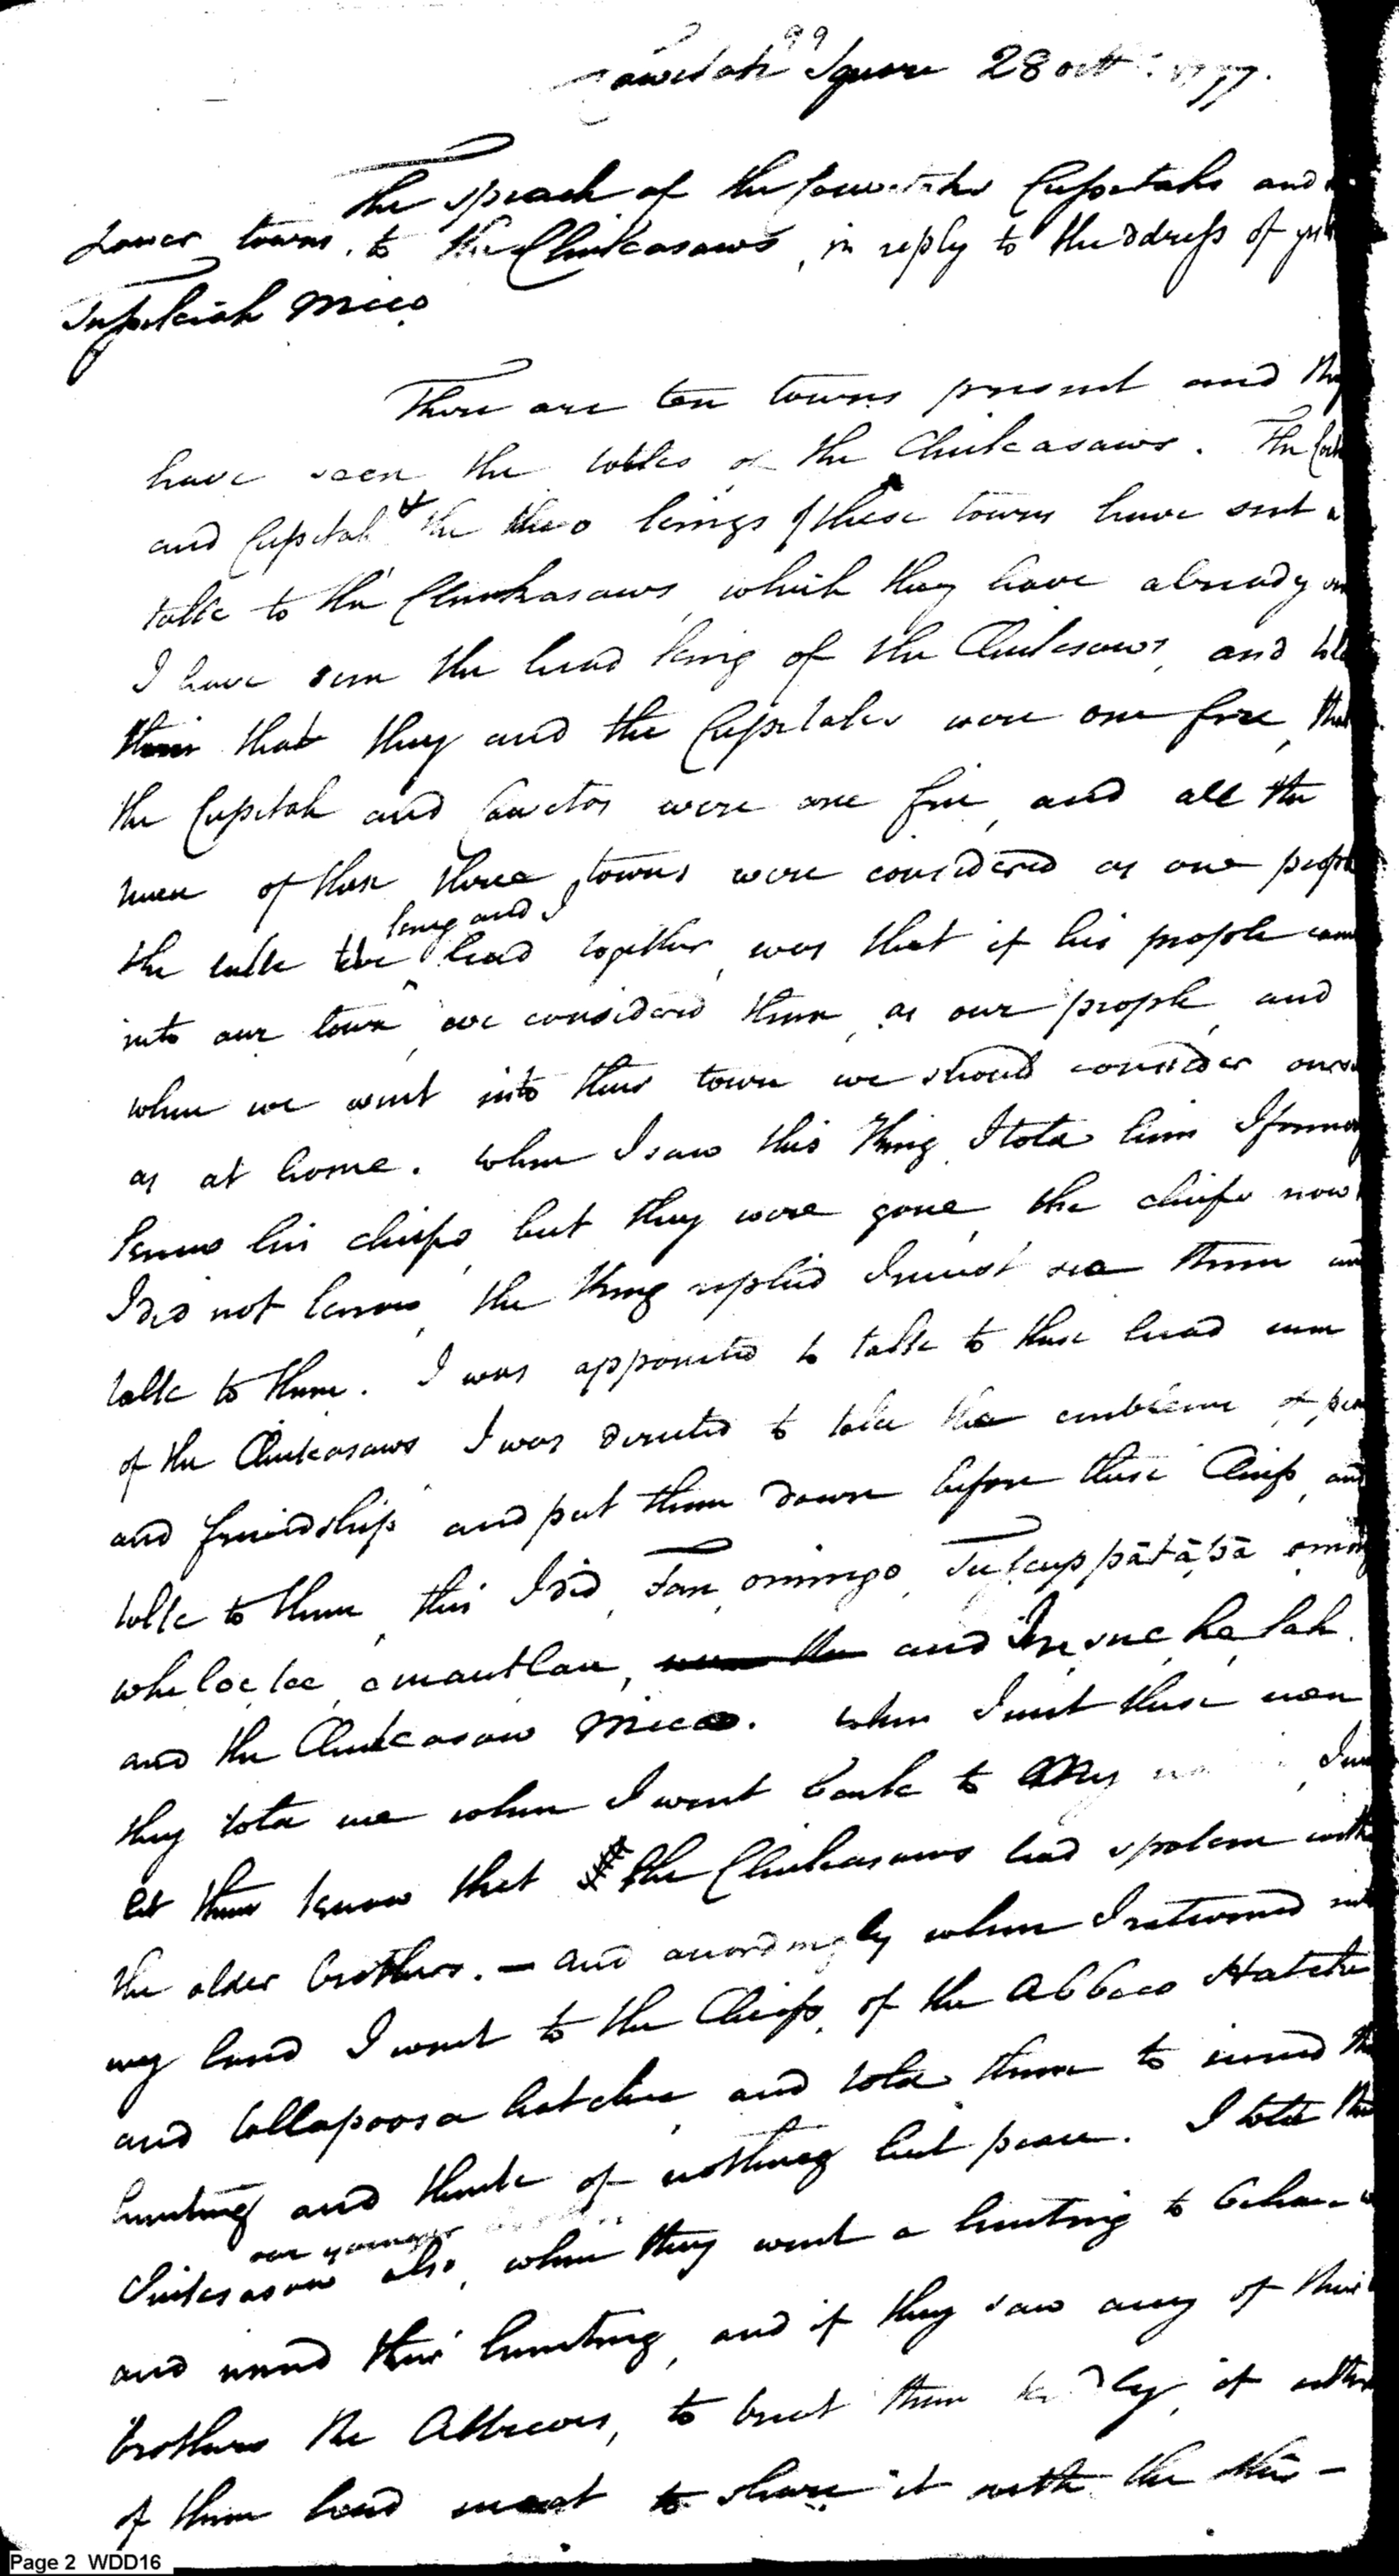 99
Cowetah Square 28 octr. 1797.
The speach of the Cowetahs Cussetahs and
Lower towns, to the Chickasaws, in reply to the address of
Tuskeiah Mico
There are ten towns present and they
have seen the talks of the Chickasaws. The
and Cussetah & the two kings of these towns have sent a
talk to the Chickasaws, which they have already
I have seen the head king of the Chickesaws, and told
them that they and the Cussetahs were one fire, that
the Cussetah and Cowetas were one fire, and all the
men of these three towns were considered as one people
king and I
the talk we had together, was that if his people came
into our town, we considered them, as our people, and
when we went into their town we should consider
as at home. When I saw this King I told him I
knew his chiefs, but they were gone, the chiefs now
I did not know, the King replied I must see them and
talk to them. I was appointed to talk to these head men
of the Chickasaws I was directed to take the emblems of
and friendship and put them down before these Chiefs, and
talk to them, this I did, Tom, omingo,
and
and the Chickasaw Mico. When I met these men
they told me when I went back to my
let them know that the Chickasaws had spoken with
the older brothers. — and accordingly when I returned
my land I went to the Chiefs, of the Abbaco Hatche
and tallapoosa hatchee, and told them to mind
hunting and think of nothing but peace. I told
our younger
Chickasaw also, when they went a hunting to
and mind their hunting, and if they saw any of their
brothers the Abbacoes, to treat them kindly, if
of them had meat to share it with the other —
Page 2 WDD16